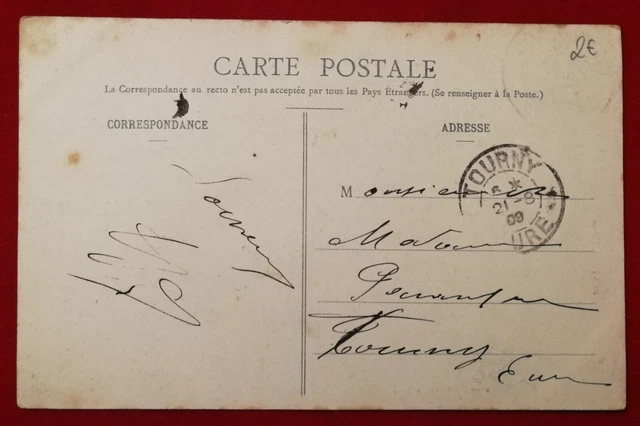 2€
CARTE POSTALE
La Correspondance au recto n'est pas acceptée par tous les Pays Étrangers. (Se renseigner à la Poste.)
CORRESPONDANCE
ADRESSE
TOURNY
21-8
09
EURE
Monsieur
Madame
Tourny
Eure